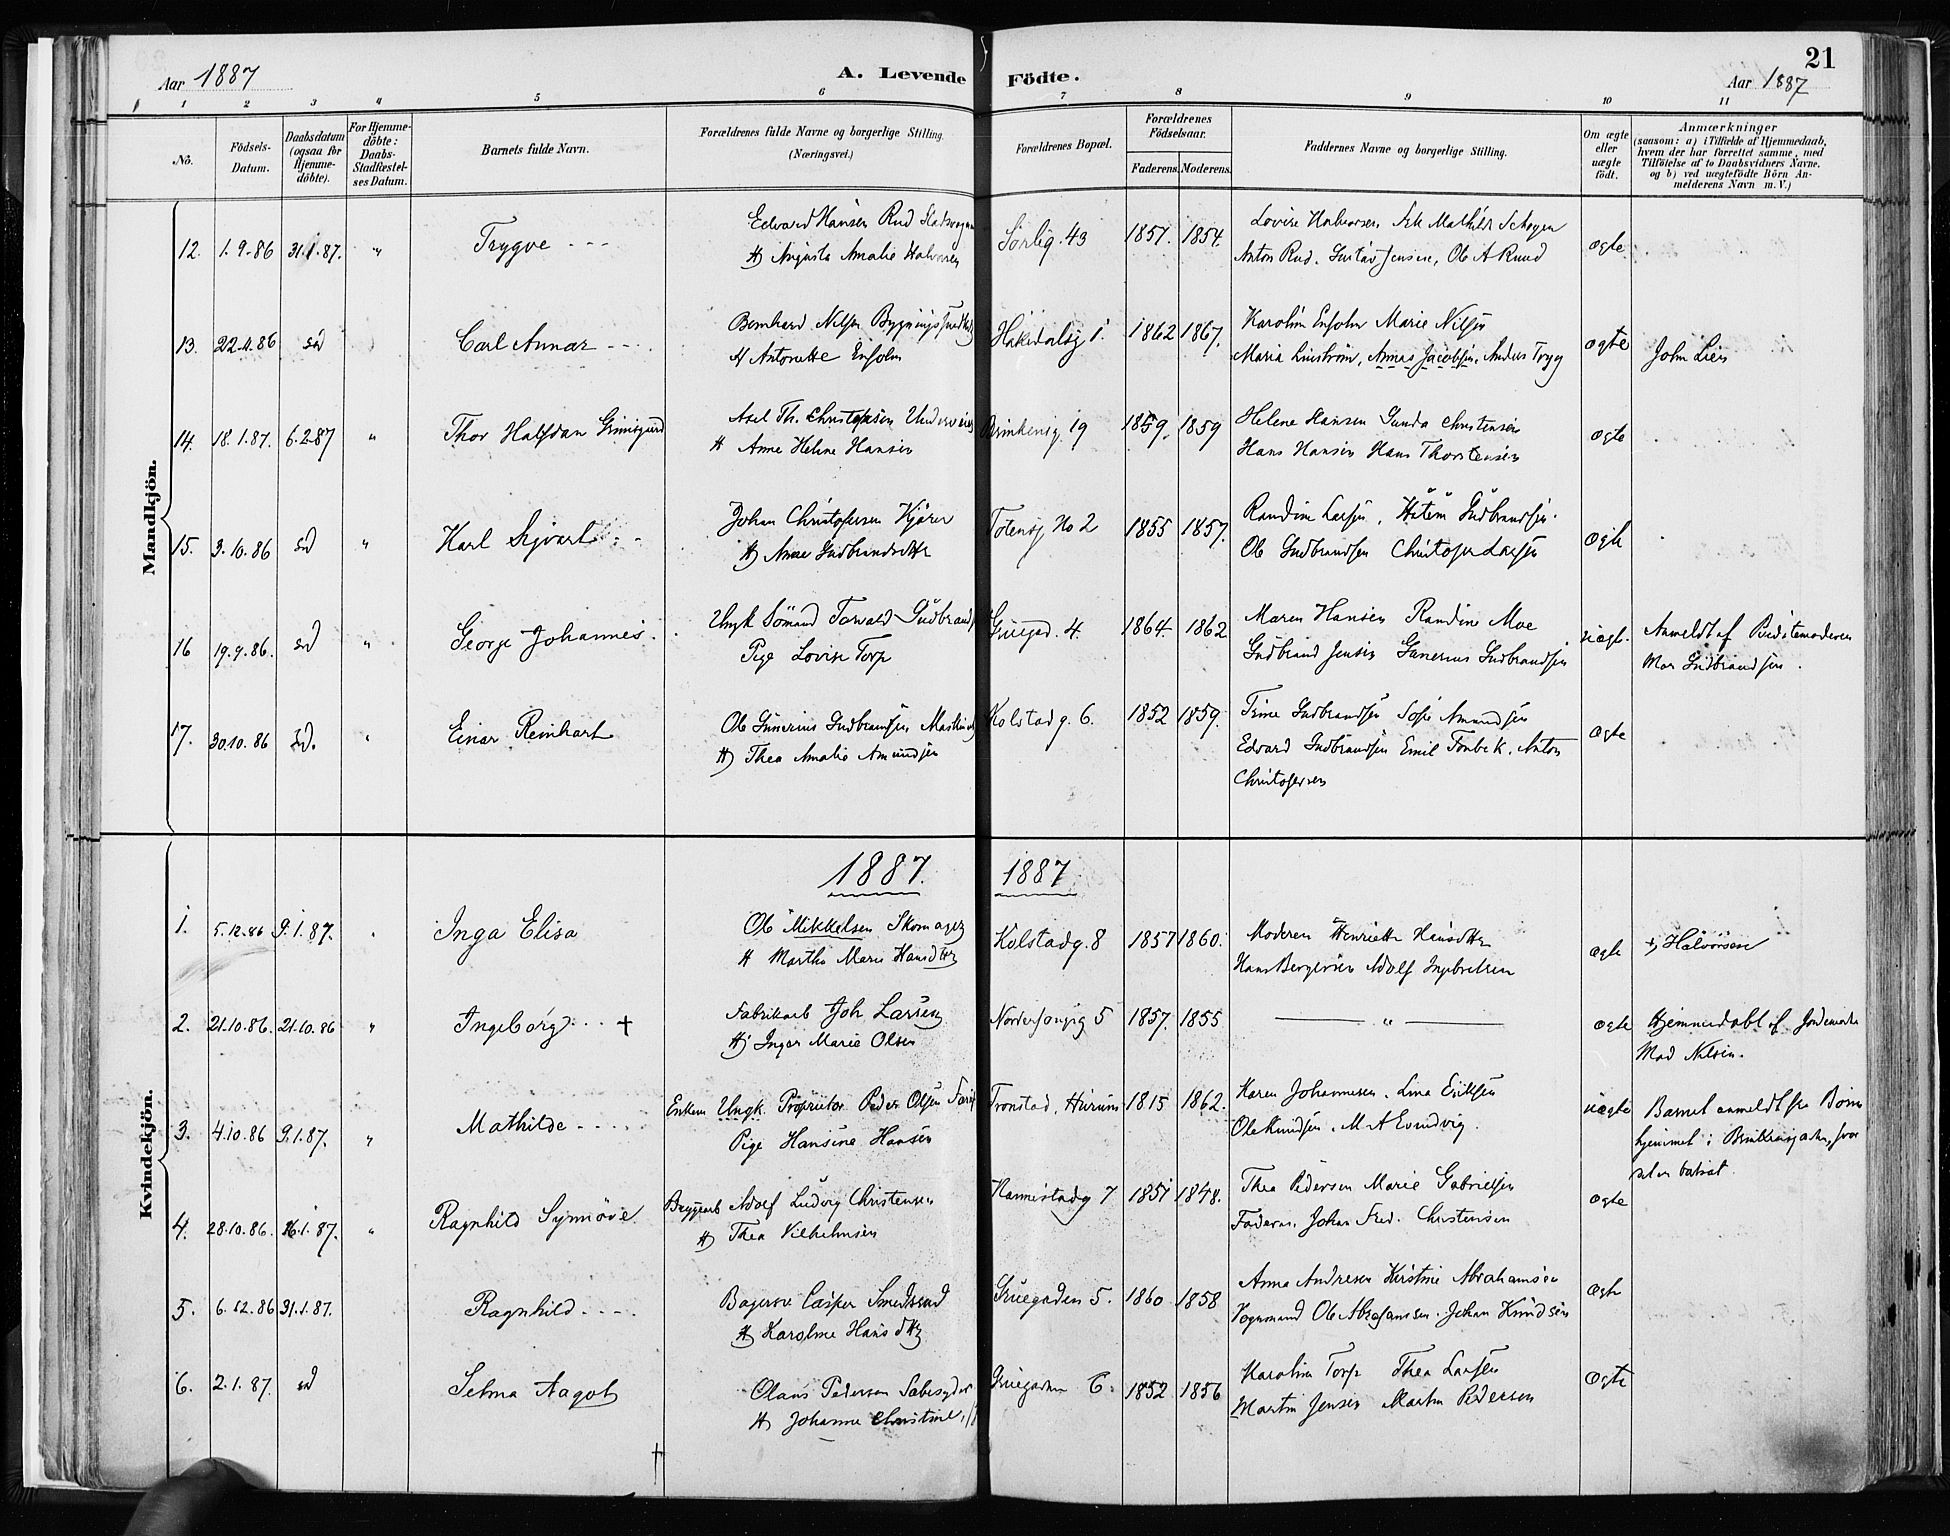 Aar 1887
A. Levende Födte.
21
Aar 1887
1 2 3 4 5 6 7 8 9 10 11
No.
Födsels-Datum.
Daabsdatum (ogsaa for Hjemme-döbte).
For Hjemme-döbte: Daabs-Stadfæstel-ses Datum.
Barnets fulde Navn.
Forældrenes fulde Navne og borgerlige Stilling. (Næringsvei.)
Forældrenes Bopæl.
Forældrenes Födselsaar.
Faderens. Moderens.
Faddernes Navne og borgerlige Stilling.
Om ægte eller uægte födt.
Anmærkninger
(saasom: a) i Tilfælde af Hjemmedaab, hvem der har forrettet samme, med Tilföielse af to Daabsvidners Navne. og b) ved uægtefödte Börn An-melderens Navn m. V.)
Mandkjön.
12. 1.9.86 31.1.87. " Trygve
Edvard Hansen Rud
H Augusta Amalie Halvorsen
Sørlig. 43 1857. 1854.
Lovise Halvorsen Mathilde
Anton Rud. Gustav Jensen, Ole A Ruud
ægte
13. 22.11.86 sd " Carl Annar
Bernhard Nilsen
H Antonette Enholm
Hakedalsg 1. 1862 1867.
Karoline Enholm Marie Nilsen
Maria Linström, Annas Jacobsen, Anders Tryg
ægte
John Lien
14. 18.1.87. 6.2.87 " Thor Halfdan Grimsgaard
Axel Th. Christofersen
H Anne Helene Hansen
Brinkensg. 19 1859. 1859
Helene Hansen Gunda Christensen
Hans Hansen Hans Thorstensen
ægte
15. 3.10.86 sd " Karl Sigvart
Johan Christofersen Kjører
H Anne Gudbrandsdtr
Totensg No 2 1855 1857.
Randine Larsen, Gudbrandsen.
Ole Gudbrandsen Christofer Larsen
ægte
16 19.9.86. sd " George Johannes.
Ungk Sømand Torvald Gudbrands
Pige Lovise Torp
Gruegad. 4. 1864. 1862
Maren Hansen Randine Moe
Gudbrand Jensen Gunerius Gudbrandsen
uægte.
Anmeldt af Bedstemoderen
Mar Gudbrandsen.
17. 30.10.86 sd. " Einar Reinhart
Ole Gunerius Gudbrandsen
H Thea Amalie Amundsen
Kolstadg. 6. 1852 1859.
Trine Gudbrandsen Sofie Amundsen
Edvard Gudbrandsen Emil Fonbek. Anton
Christofersen
ægte
1887. 1887
Kvindekjön.
1. 5.12.86 9.1.87. Inga Elisa
Ole Mikkelsen Skomager
H Martha Marie Hansdtr
Kolstadg. 8 1857 1860.
Moderen Henriette Hansdtr
Hans Bergersen Adolf Ingebretsen
ægte
Halvorsen
2. 21.10.86. 21.10.86 " Ingeborg +
Fabrikarb Joh Larsen
H Inger Marie Olsen
5 1857. 1855
"
ægte
Hjemmedøbt af Jordemoder
Mad Nilsen.
3. 4.10.86 9.1.87. " Mathilde
Enkem Ungk. Proprietær Peder Olsen
Pige Hansine Hansen
Tronstad, Hurum 1815 1862.
Karen Johannesen. Lina Eriksen
Ole Knudsen. M A Lundvig.
uægte
Barnet anmeldt fra Børne
hjemmet i
det er batrat.
4. 28.10.86. 16.1.87. " Ragnhild Synnøve
Bryggearb Adolf Ludvig Christensen
H Thea Vilhelmsen
7 1851 1848.
Thea Pedersen Marie Gabrielsen
Faderen. Johan Fred. Christensen
ægte
5. 6.12.86 31.1.87. Ragnhild.
Bagersv Casper Smedsrud
H Karoline Hansdtr
Gruegaden 5. 1860 1858
Anna Andresen Kirstine Abrahamsen
Vognmand Ole Abrahamsen. Johan Knudsen
ægte
6. 2.1.87. sd Selma Aagot
Olaus Pedersen
H Johanne Christine
Gruegaden 6. 1852 1856
Karoline Torp Thea Larsen
Martin Jensen Martin Pedersen
ægte
+